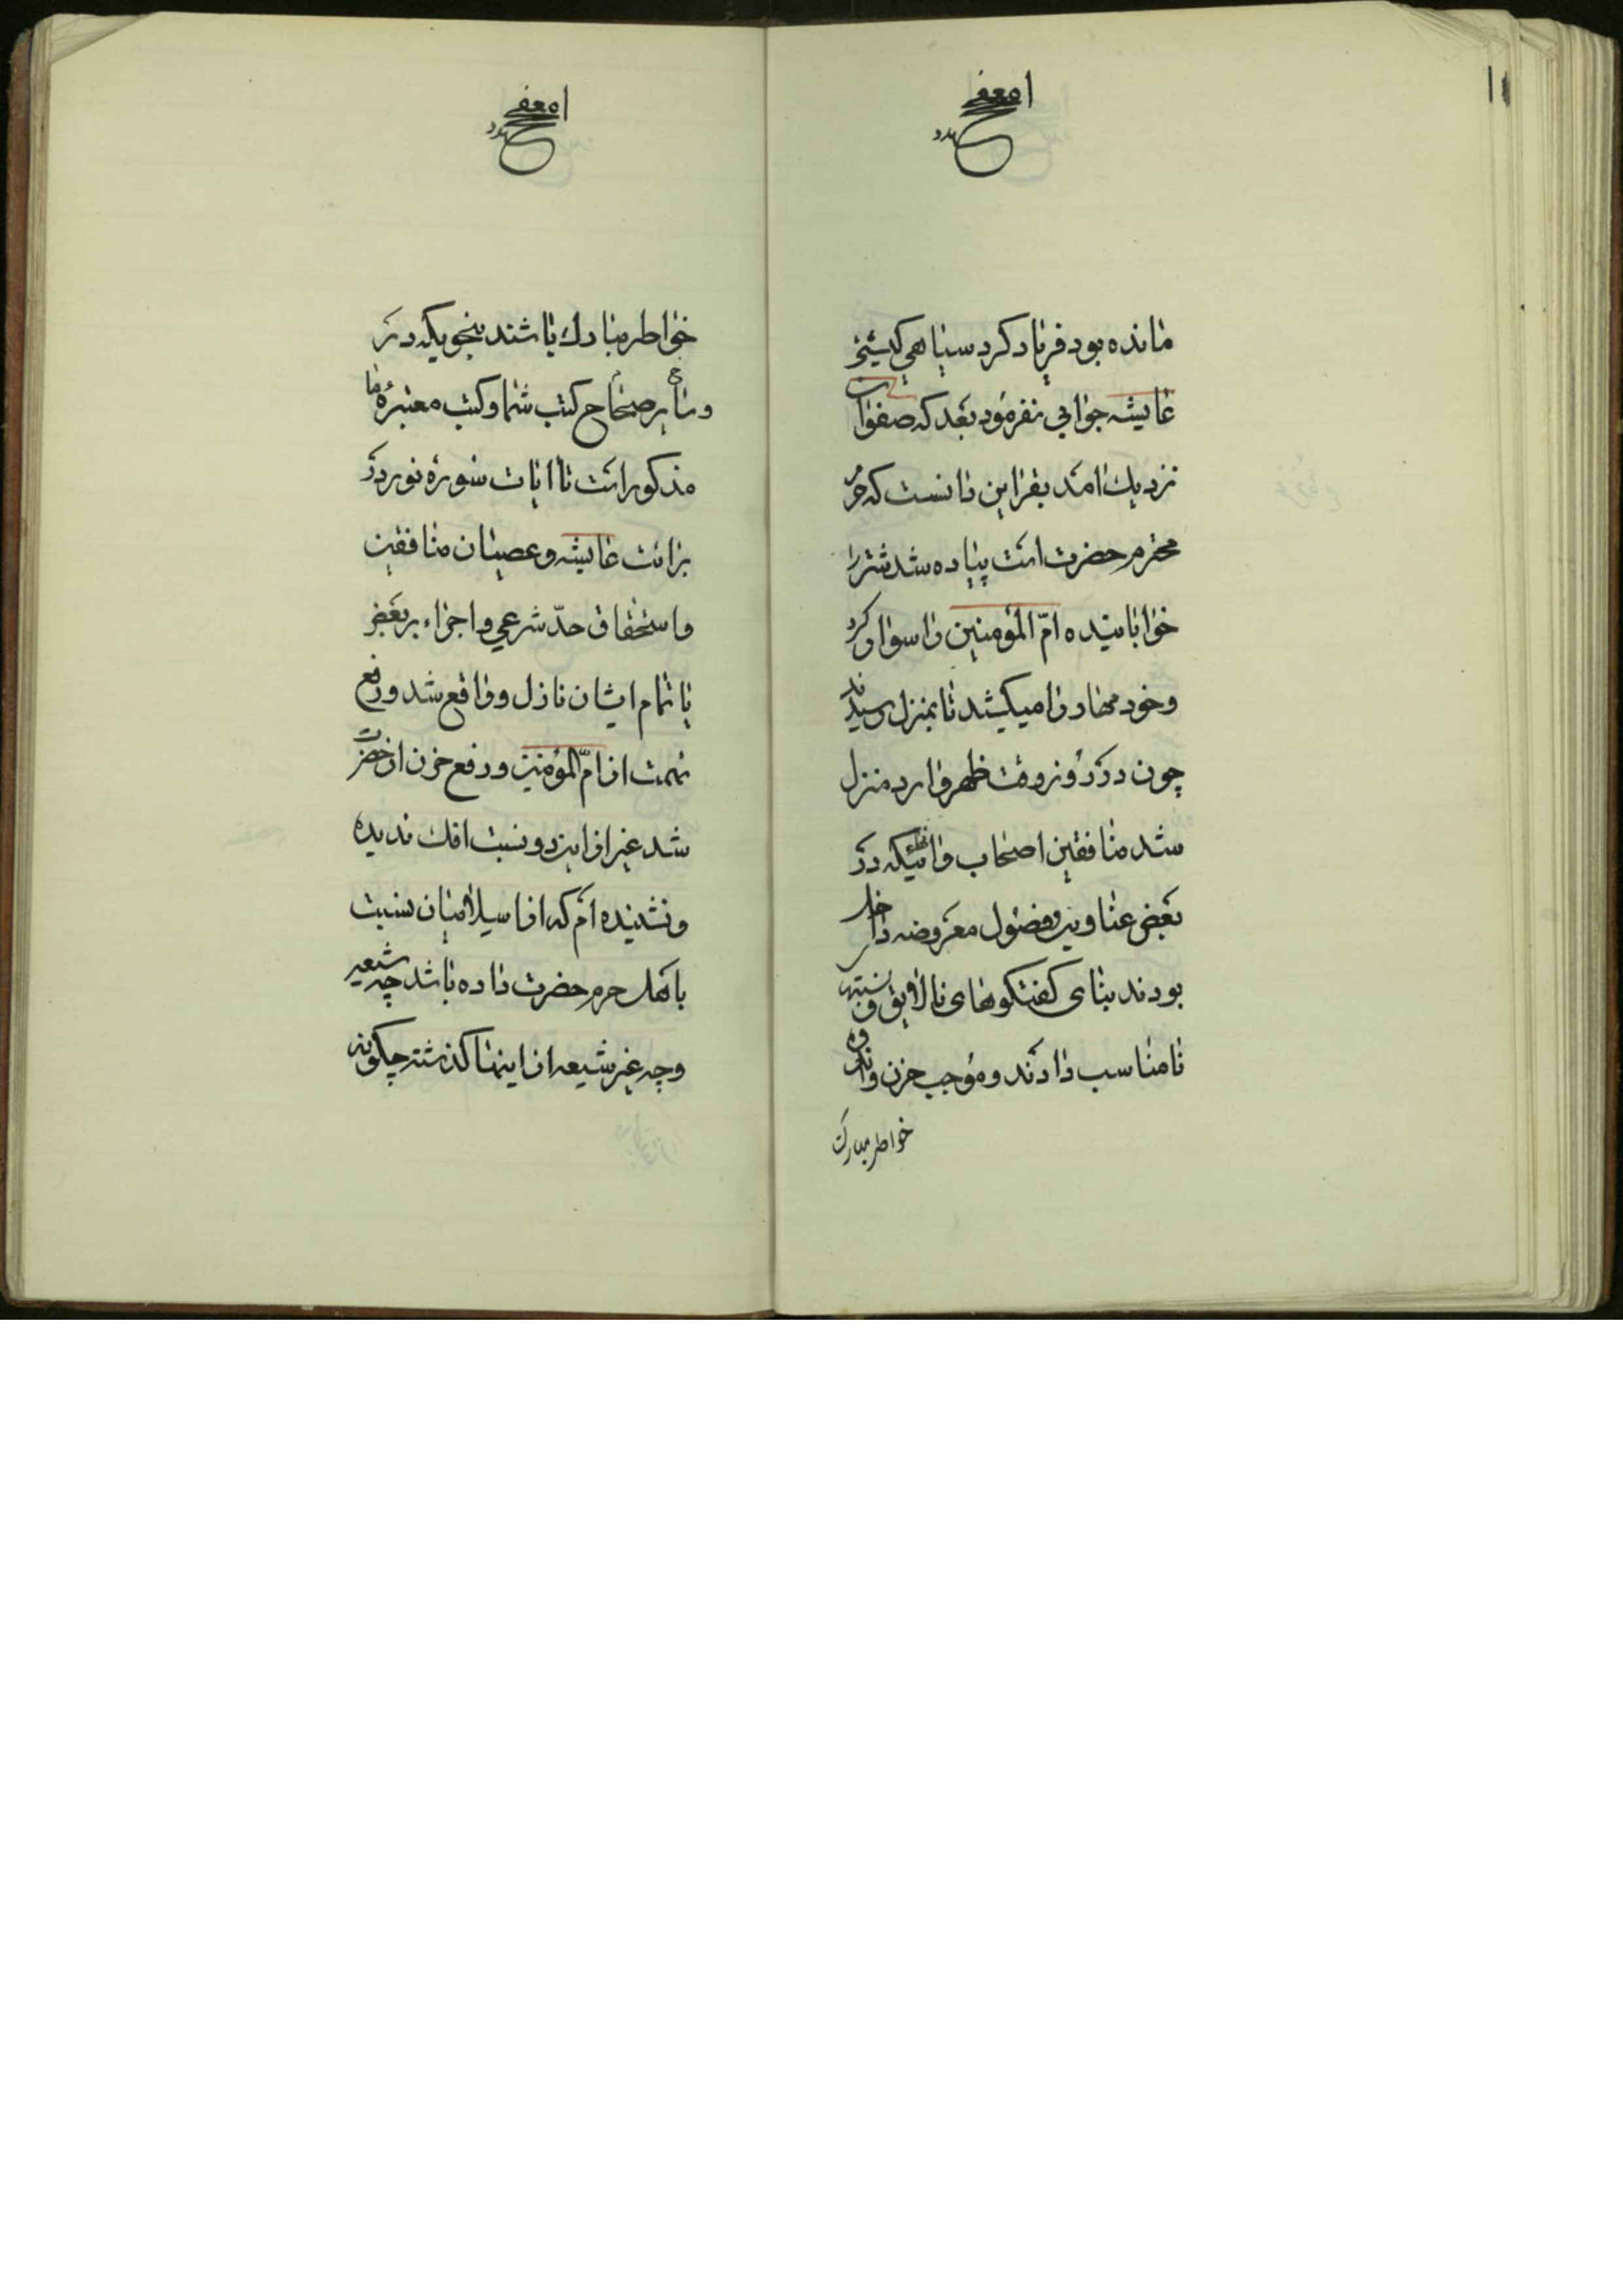 مانده بود فریاد کرد سیاهی کیستی
عایشه جوابی نفرمود بعد که صفوان
نزدیک آمد بقراین دانست که حرم
محترم حضرت است پیاده شد شتر را
خوابانیده امّ المؤمنین را سوار کرد
و خود مهار را میکشد تا بمنزل رسیدند
چون در روز وقت ظهر وارد منزل
شد منافقین اصحاب
بعضی عناوین و فصول معروضه داخل
بودند بنای گفتگوهای نالایق و نسبتهای
نامناسب دادند و موجب حزن و اندوه
خواطر مبارک
خواطر مبارک باشند بنحویکه در
و سایر صحاح کتب شما و کتب معتبرهٔ ما
مذکور است تا آیات سوره نور در
برائت عایشه و عصیان منافقین
و استحقاق حدّ شرعی و اجراء بر بعض
یا تمام ایشان نازل و واقع شد و رفع
تهمت از امّ المؤمنین و رفع حزن از حضرت
شد غیر از این دو نسبت افک ندیده
و نشنیده‌ام که از اسلامیان نسبت
باهل حرم حضرت داده باشد چه شیعه
و چه غیر شیعه از اینها گذشته چگونه